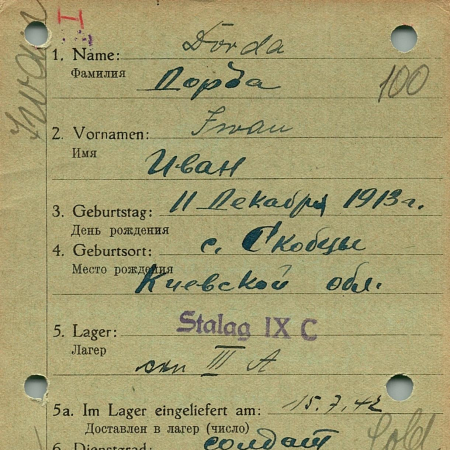 I
Iwan
Dorda
1. Name:
Фамилия
Дорда
100
2. Vornamen: Iwan
Имя
Иван
3. Geburtstag: 11 Декабря 1913 г.
День рождения
4. Geburtsort: с. Скобцы
Место рождения
Киевской обл.
5. Lager: Stalag IX C
Лагерь
III A
5a. Im Lager eingeliefert am: 15.7.42
Доставлен в лагерь (число)
6. Dienstgrad: солдат Sold